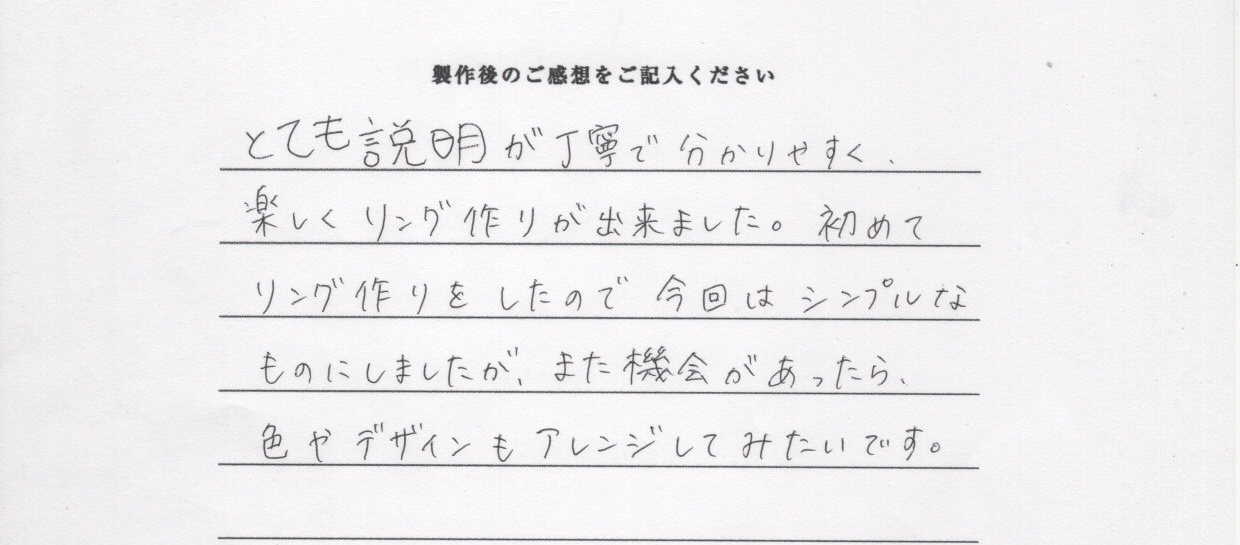 製作後のご感想をご記入ください
とても説明が丁寧で分かりやすく、
楽しくリング作りが出来ました。初めて
リング作りをしたので今回はシンプルな
ものにしましたが、また機会があったら、
色やデザインもアレンジしてみたいです。